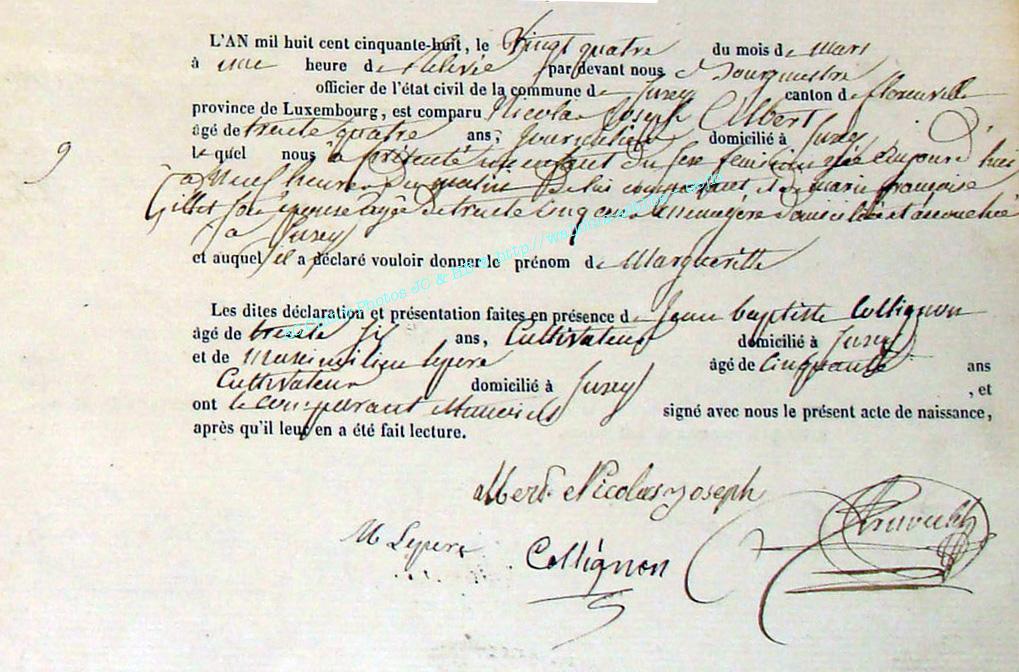 L'AN mil huit cent cinquante-huit, le Vingt quatre du mois de Mars
à une heure de Relevée par devant nous Bourgmestre
officier de l'état civil de la commune de Jusey canton de florenville
province de Luxembourg, est comparu Nicolas Joseph Albert
âgé de trente quatre ans, Journalier domicilié à Jusey
9
lequel nous a présenté un enfant du sexe féminin née aujourd'hui
à Neuf heures du matin de lui comparant et de marie françoise
Gillet son épouse agée de trente cinq ans Menagère domiciliée et accouchée
à Jusey
et auquel il a déclaré vouloir donner le prénom de Margueritte
Photos JC & http://w
Les dites déclaration et présentation faites en présence de Jean baptiste Collignon
âgé de trente six ans, Cultivateur domicilié à Jusey
et de Maximilien lepere âgé de Cinquante ans
Cultivateur domicilié à Jusey , et
ont le comparant et temoins signé avec nous le présent acte de naissance,
après qu'il leur en a été fait lecture.
Albert Nicolas Joseph
M Lepere Collignon